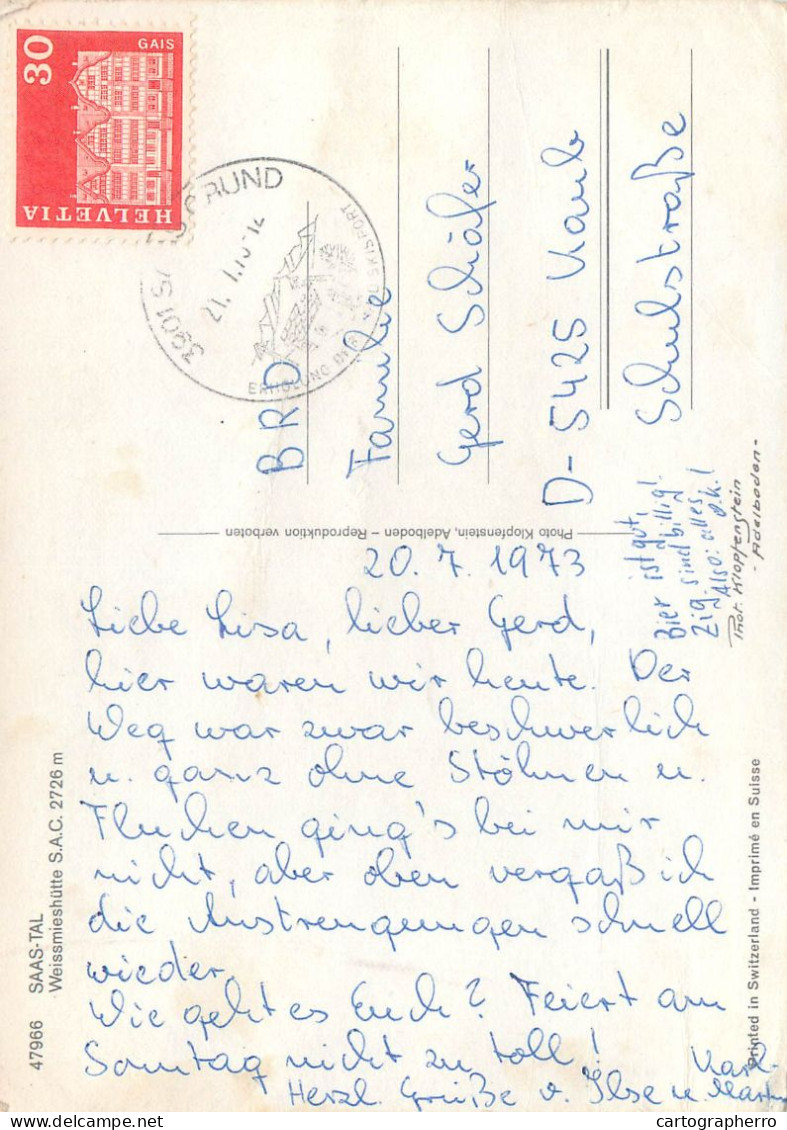 HELVETIA
30
GAIS
3901 SAAS-GRUND
ERHOLUNG
SKISPORT
BRD
Familie
Gerd Schäfer
D-5425 Kaub
Schulstraße
Photo Klopfenstein, Adelboden – Reproduktion verboten
Bier ist gut,
Zig. sind billig!
Also: alles
o.k.!
Phot. Klopfenstein
- Adelboden -
20. 7. 1973
Liebe Lisa, lieber Gerd,
hier waren wir heute. Der
Weg war zwar beschwerlich
u. ganz ohne Stöhnen u.
Fluchen ging's bei mir
nicht, aber oben vergaß ich
die Anstrengungen schnell
wieder.
Wie geht es Euch? Feiert am
Sonntag nicht zu toll!
Herzl. Grüße v. Ilse u. Karl-
Martin
47966 SAAS-TAL
Weissmieshütte S.A.C. 2726 m
Printed in Switzerland - Imprimé en Suisse
cartographerro@delcampe.net